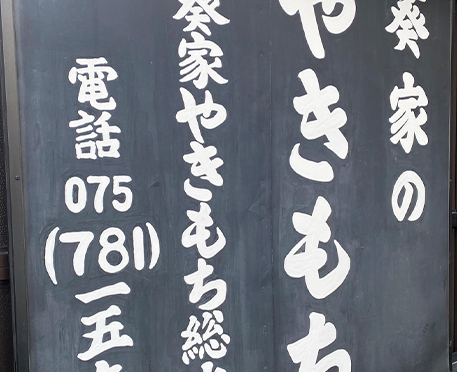 葵家の
やきもち
葵家やきもち総
電話 075 (781) 一五